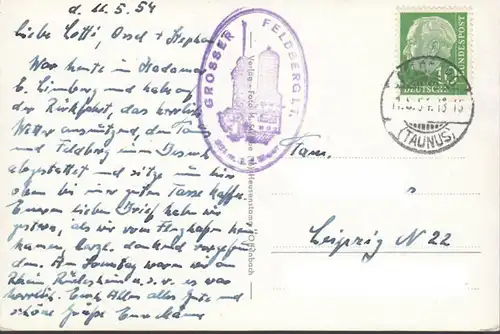 d. 11.5.54
Liebe Lotti, Ossel + Stephan
War heute in Hadamar
b. Limburg und habe auf
der Rückfahrt, das herrliche
Wetter ausnützend, dem Taunus
und Feldberg einen Besuch
abgestattet und sitze nun hier
oben bei einer guten Tasse Kaffee.
Euren lieben Brief haben wir
gestern, als wir vom Flughafen heim
kamen, dankend vorgefun
den. Am Sonntag waren wir am
Rhein, Rüdesheim u.s.w. es war
herrlich. Euch Allen alles Gute und
schöne Grüße Eure
GROSSER FELDBERG I. T.
Fam.
Leipzig N 22
DEUTSCHE BUNDESPOST
10
(TAUNUS)